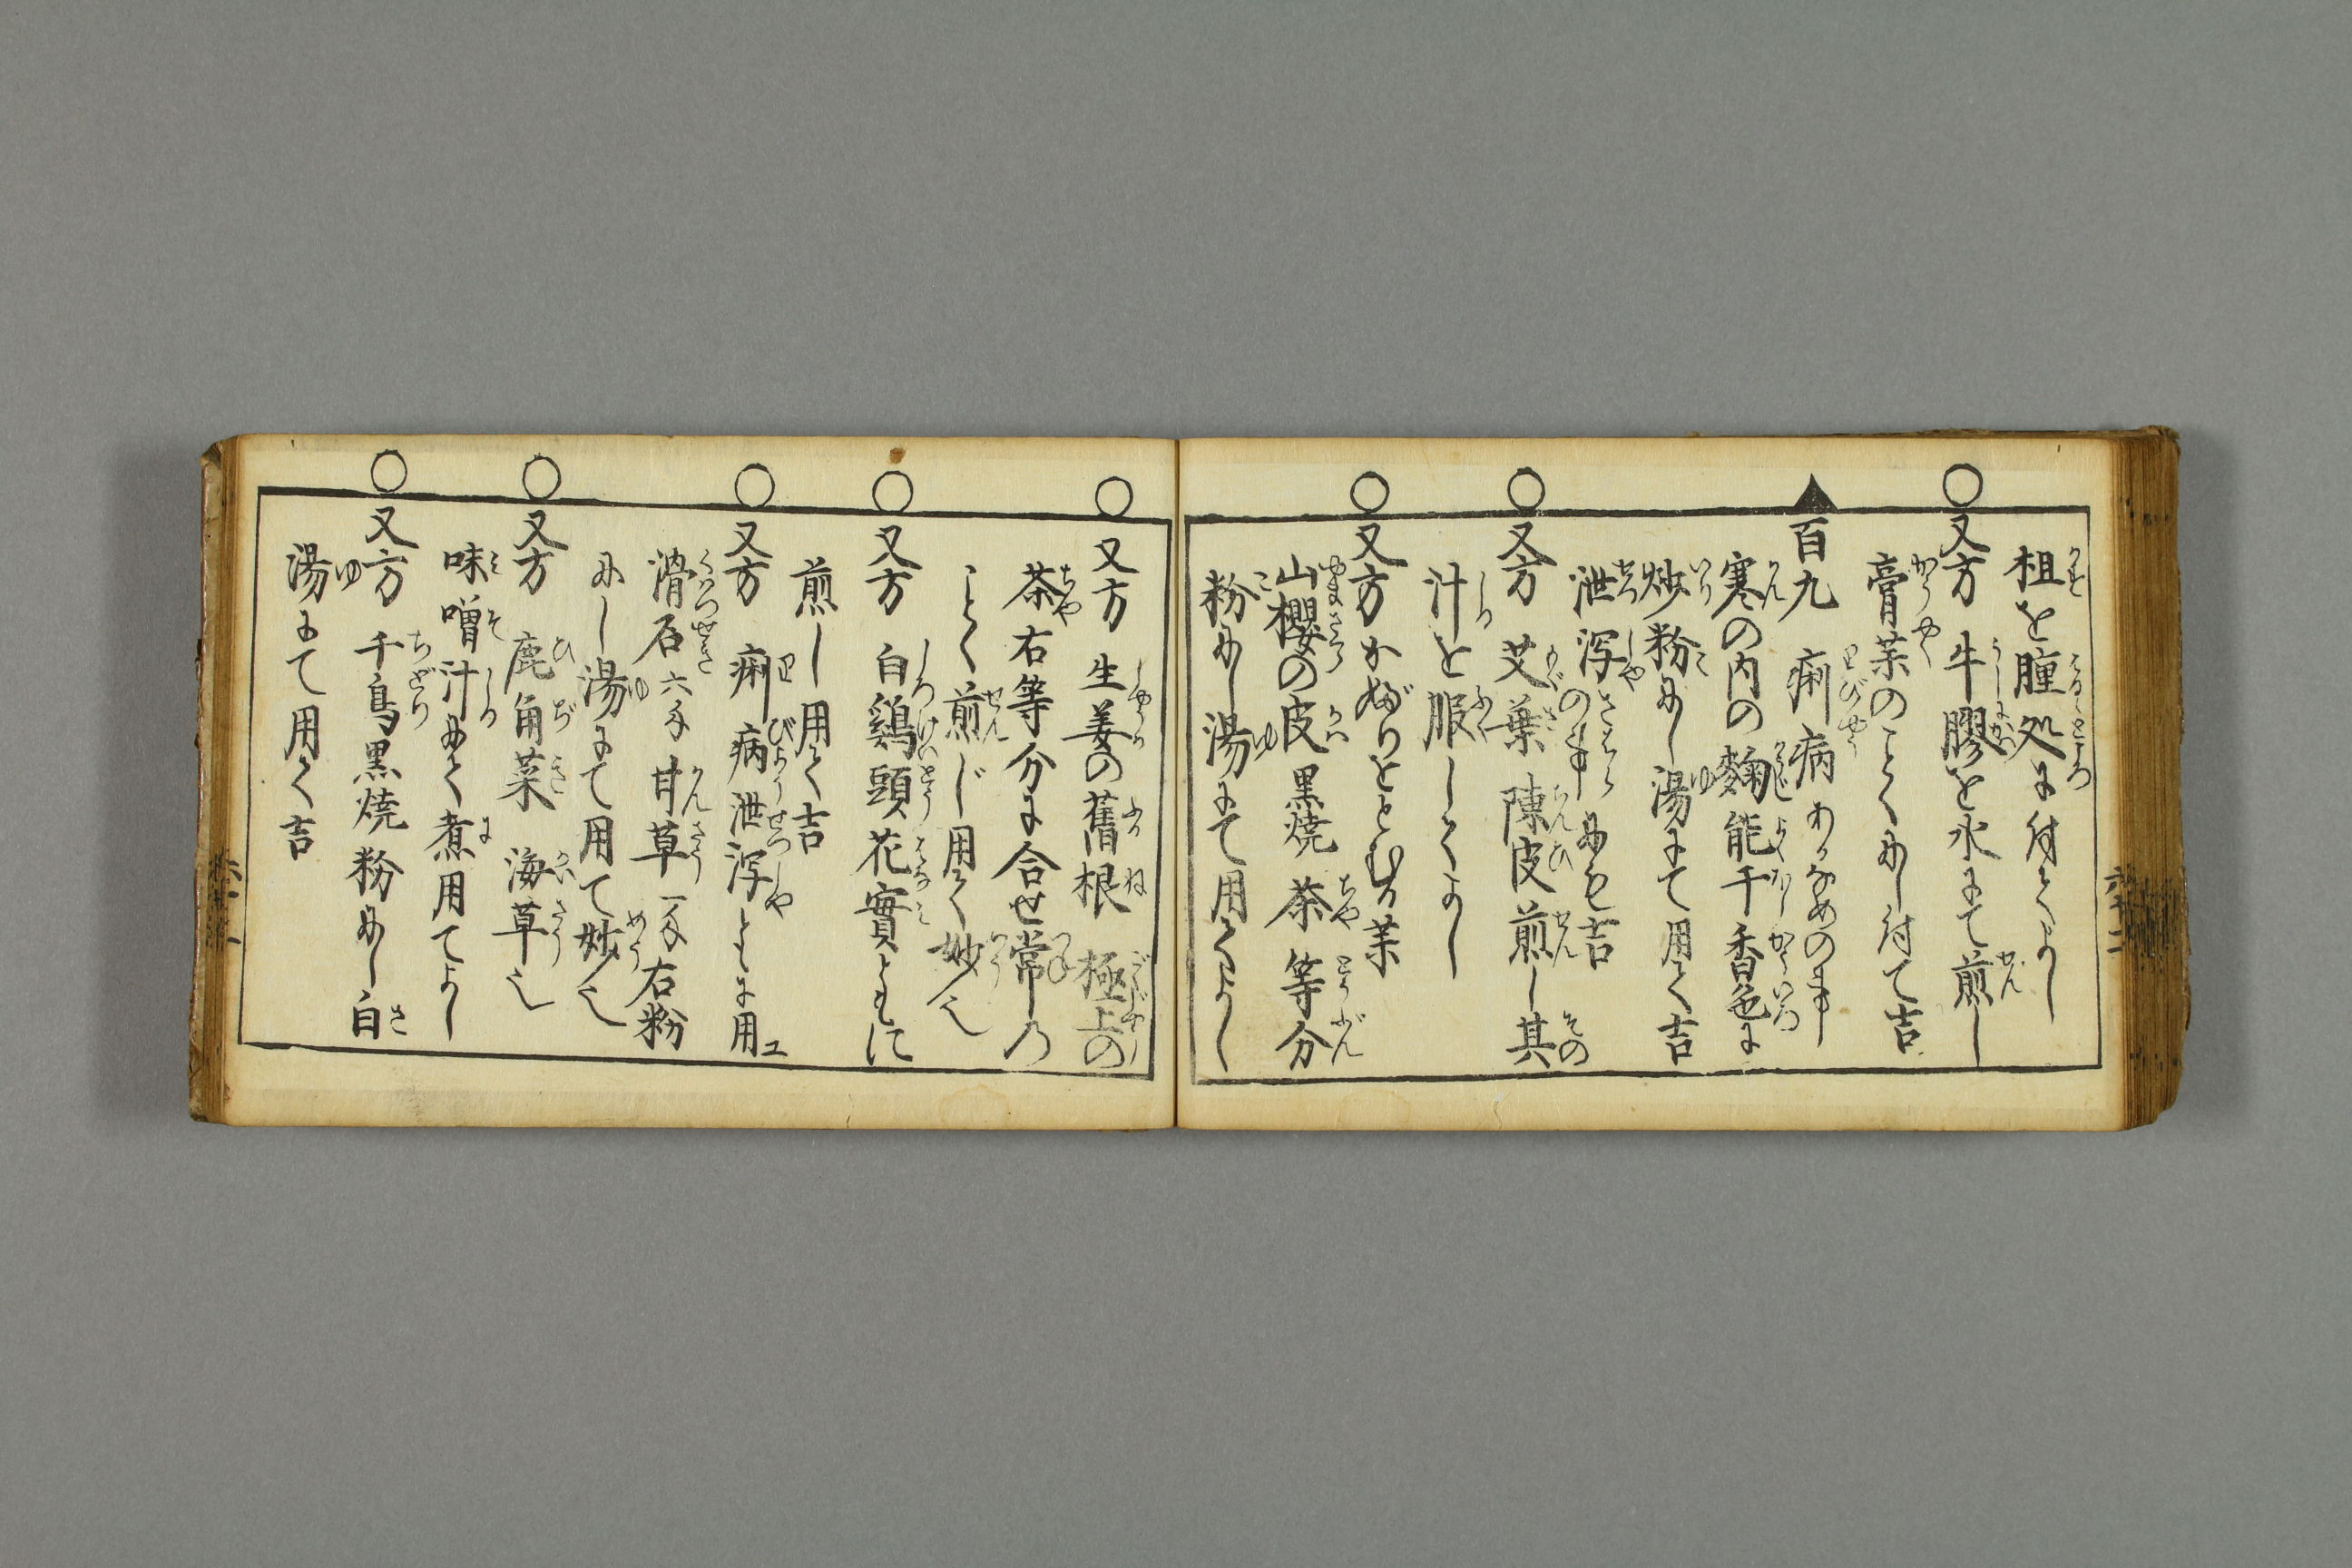 柤を腫処に付てよし
○又方 牛膠を水にて煎し
膏薬のことくにし付て吉
▲百九 痢病あかなめの事
寒の内の麹能干香色に
炒粉にし湯にて用て吉
泄泻の事にも吉
○又方 艾葉 陳皮 煎し其
汁を服してよし
○又方 かぶりをとむる薬
山櫻の皮 黒焼 茶 等分
粉にし湯にて用てよし
○又方 生姜の舊根 極上の
茶 右等分に合せ常の
ことく煎じ用て妙也
○又方 白鷄頭花實ともに
煎し用て吉
○又方 痢病泄泻ともに用ユ
滑石 六匁 甘草 一匁 右粉
にし湯にて用て妙也
○又方 鹿角菜 海草也
味噌汁にて煮用てよし
○又方 千鳥黒焼粉にし白
湯にて用て吉
六十二